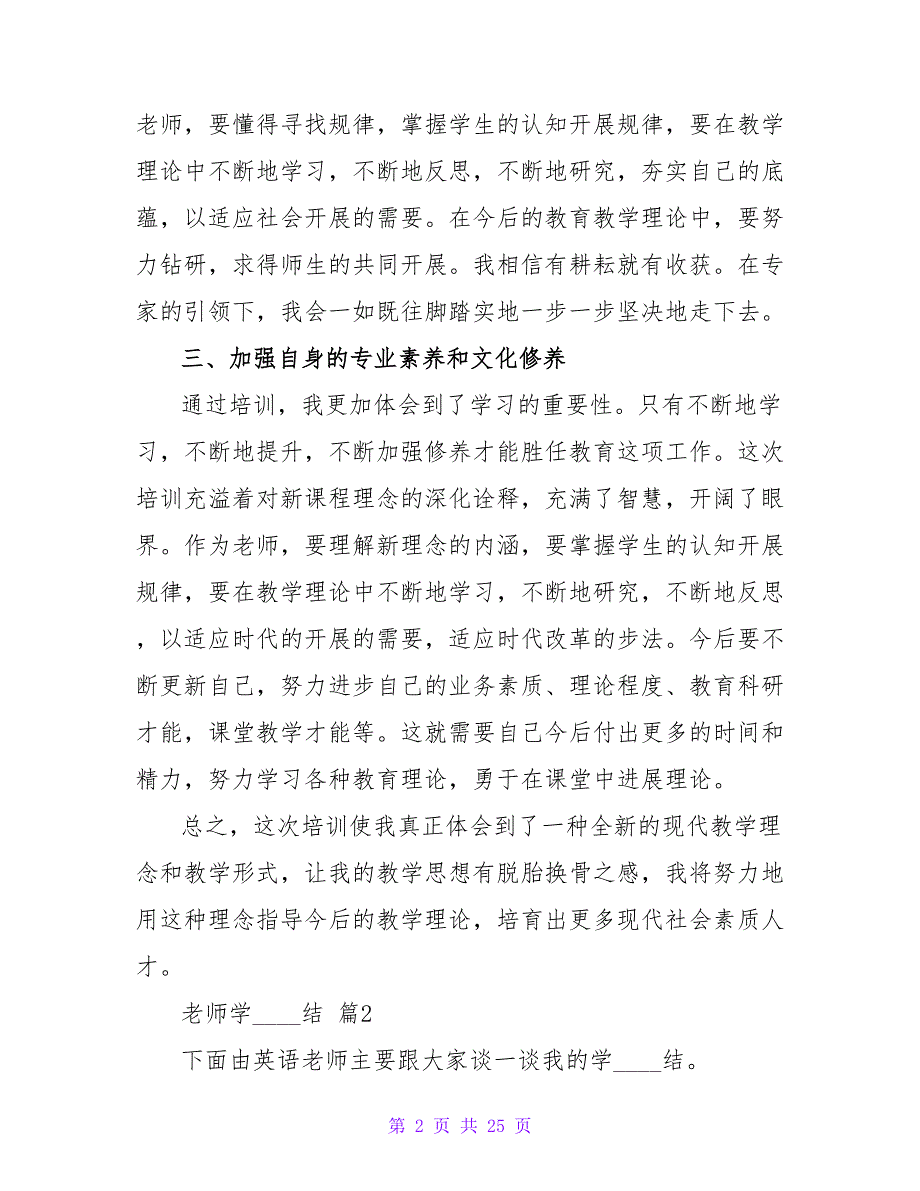 老师，要懂得寻找规律，掌握学生的认知开展规律，要在教学
理论中不断地学习，不断地反思，不断地研究，夯实自己的底
蕴，以适应社会开展的需要。在今后的教育教学理论中，要努
力钻研，求得师生的共同开展。我相信有耕耘就有收获。在专
家的引领下，我会一如既往脚踏实地一步一步坚决地走下去。
三、加强自身的专业素养和文化修养
通过培训，我更加体会到了学习的重要性。只有不断地学
习，不断地提升，不断加强修养才能胜任教育这项工作。这次
培训充溢着对新课程理念的深化诠释，充满了智慧，开阔了眼
界。作为老师，要理解新理念的内涵，要掌握学生的认知开展
规律，要在教学理论中不断地学习，不断地研究，不断地反思
，以适应时代的开展的需要，适应时代改革的步法。今后要不
断更新自己，努力进步自己的业务素质、理论程度、教育科研
才能，课堂教学才能等。这就需要自己今后付出更多的时间和
精力，努力学习各种教育理论，勇于在课堂中进展理论。
总之，这次培训使我真正体会到了一种全新的现代教学理
念和教学形式，让我的教学思想有脱胎换骨之感，我将努力地
用这种理念指导今后的教学理论，培育出更多现代社会素质人
才。
老师学____结 篇2
下面由英语老师主要跟大家谈一谈我的学____结。
第 2 页 共 25 页